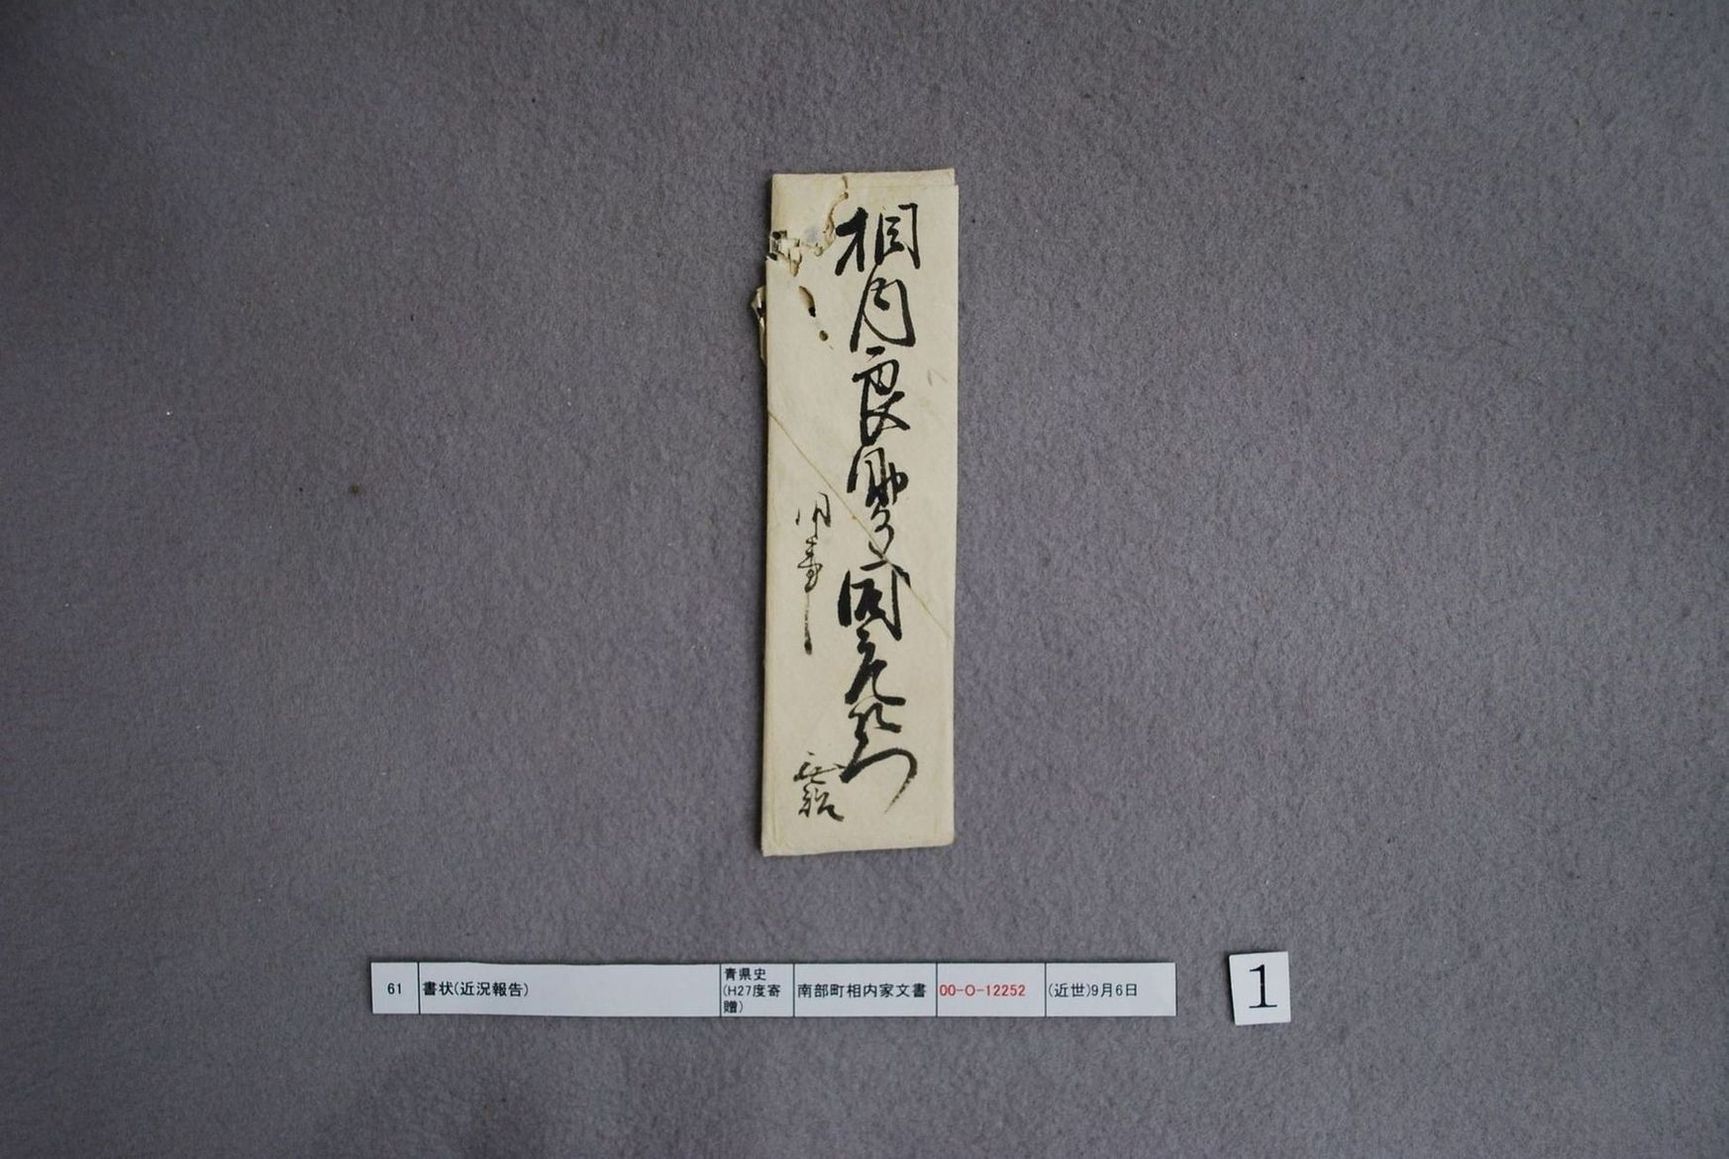 相内良助
用事
61
書状(近況報告)
青県史
(H27度寄
贈)
南部町相内家文書
00-O-12252
(近世)9月6日
1